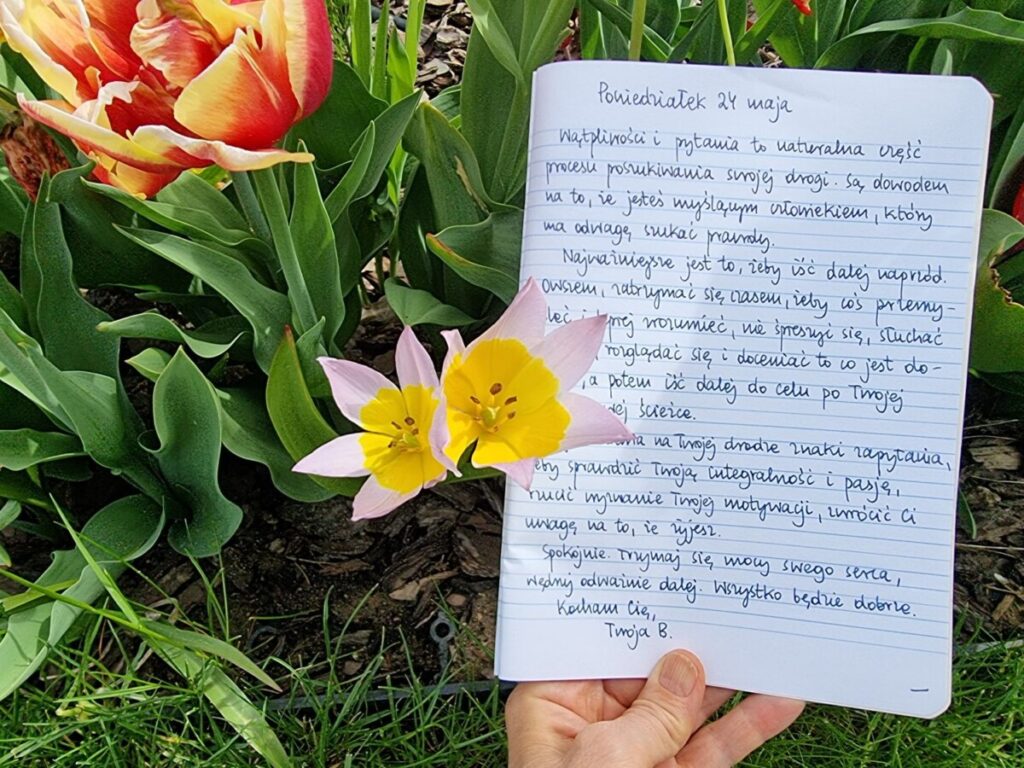 Poniedziałek 24 maja
Wątpliwości i pytania to naturalna część
procesu poszukiwania swojej drogi. Są dowodem
na to, że jesteś myślącym człowiekiem, który
ma odwagę szukać prawdy.
Najważniejsze jest to, żeby iść dalej naprzód.
Owszem, zatrzymać się czasem, żeby coś przemy-
zrozumieć, nie śpieszyć się, słuchać
rozglądać się i doceniać to co jest do-
, a potem iść dalej do celu po Twojej
ścieżce.
na Twojej drodze znaki zapytania,
żeby sprawdzić Twoją integralność i pasję,
rzucić wyzwanie Twojej motywacji, zwrócić Ci
uwagę na to, że żyjesz.
Spokojnie. Trzymaj się mocy swego serca,
wędruj odważnie dalej. Wszystko będzie dobrze.
Kocham Cię,
Twoja B.